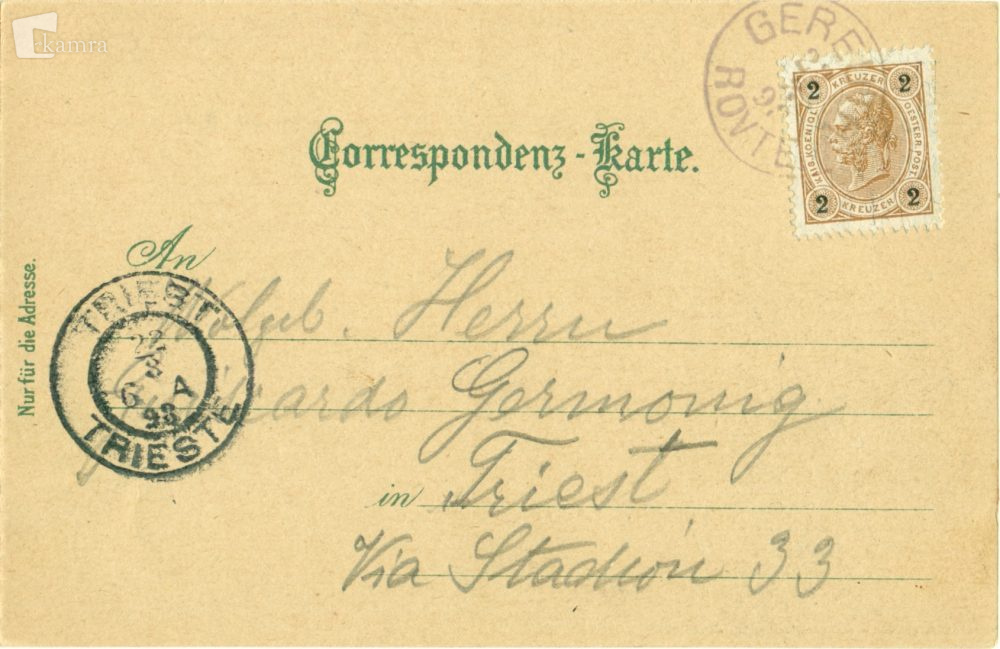 kamra
GERE
ROVTE
2 KREUZER 2
KAIS. KOENIGL. OESTERR. POST.
2 KREUZER 2
Correspondenz-Karte.
An
Wolgeb. Herrn
Germonig
in Triest
Via Stadion 33
Nur für die Adresse.
TRIEST
TRIESTE